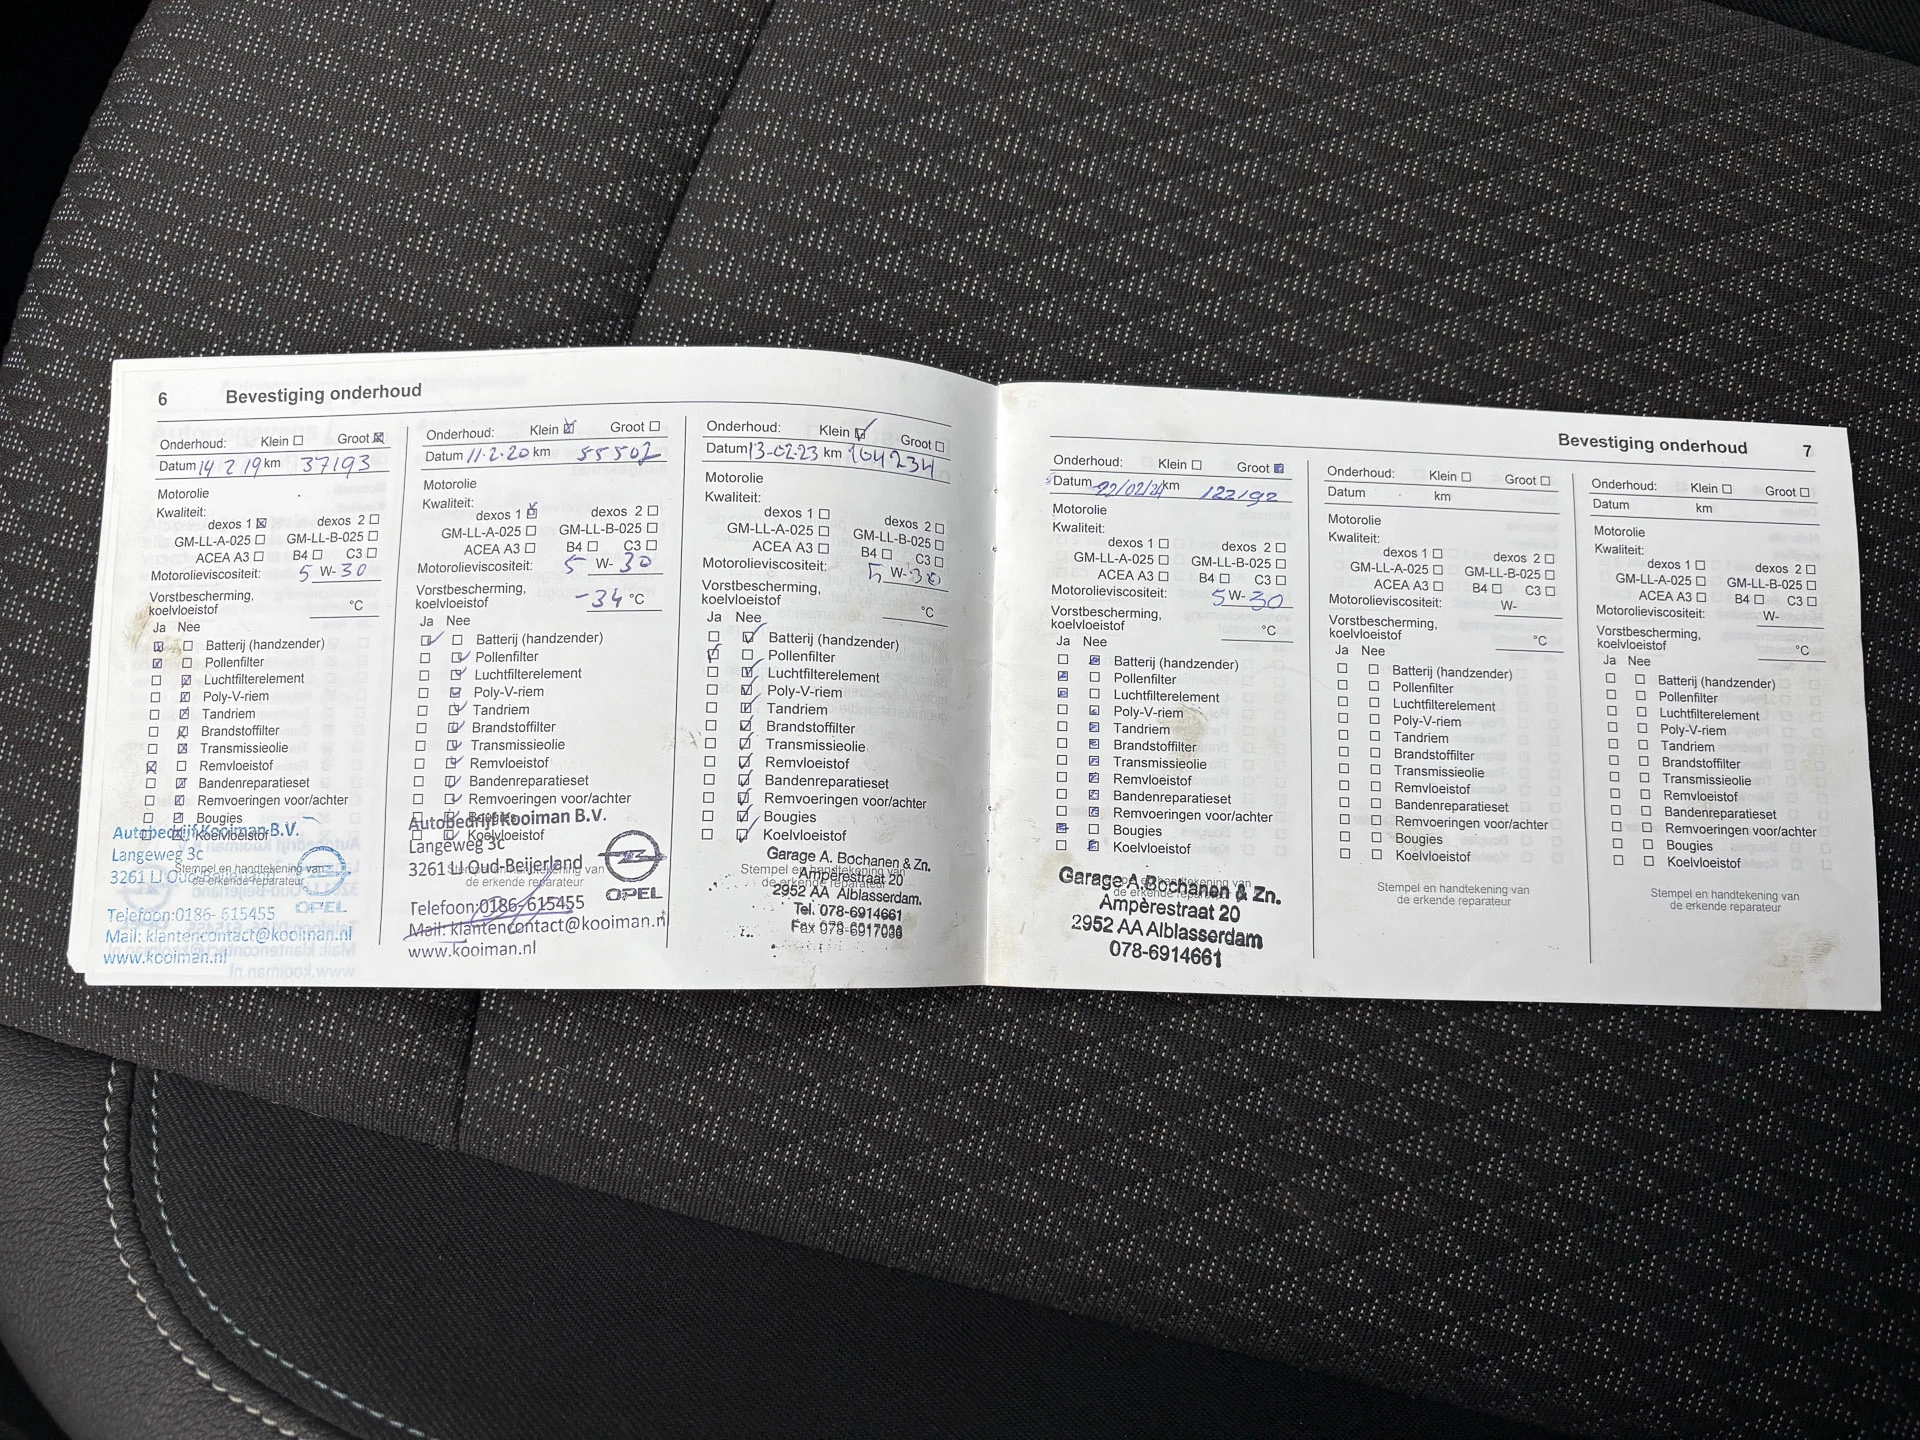 6 Bevestiging onderhoud
Onderhoud: Klein Groot
Datum 14 2 19 km 37193
Motorolie
Kwaliteit:
dexos 1 dexos 2
GM-LL-A-025 GM-LL-B-025
ACEA A3 B4 C3
Motorolieviscositeit: 5 W- 30
Vorstbescherming,
koelvloeistof °C
Ja Nee
Batterij (handzender)
Pollenfilter
Luchtfilterelement
Poly-V-riem
Tandriem
Brandstoffilter
Transmissieolie
Remvloeistof
Bandenreparatieset
Remvoeringen voor/achter
Bougies
Koelvloeistof
Autobedrijf Kooiman B.V.
Langeweg 3c
Stempel en handtekening van
3261 LJ Oud-Beijerland
de erkende reparateur
OPEL
Telefoon:0186- 615455
Mail: klantencontact@kooiman.nl
www.kooiman.nl
Onderhoud: Klein Groot
Datum 11-2-20 km 55502
Motorolie
Kwaliteit:
dexos 1 dexos 2
GM-LL-A-025 GM-LL-B-025
ACEA A3 B4 C3
Motorolieviscositeit: 5 W- 30
Vorstbescherming,
koelvloeistof -34 °C
Ja Nee
Batterij (handzender)
Pollenfilter
Luchtfilterelement
Poly-V-riem
Tandriem
Brandstoffilter
Transmissieolie
Remvloeistof
Bandenreparatieset
Remvoeringen voor/achter
Bougies
Autobedrijf Kooiman B.V.
Koelvloeistof
Langeweg 3c
3261 LJ Oud-Beijerland
Stempel en handtekening van
de erkende reparateur
OPEL
Telefoon:0186-615455
Mail: klantencontact@kooiman.nl
www.kooiman.nl
Onderhoud: Klein Groot
Datum 13-02-23 km 104234
Motorolie
Kwaliteit:
dexos 1 dexos 2
GM-LL-A-025 GM-LL-B-025
ACEA A3 B4 C3
Motorolieviscositeit: 5 W- 30
Vorstbescherming,
koelvloeistof °C
Ja Nee
Batterij (handzender)
Pollenfilter
Luchtfilterelement
Poly-V-riem
Tandriem
Brandstoffilter
Transmissieolie
Remvloeistof
Bandenreparatieset
Remvoeringen voor/achter
Bougies
Koelvloeistof
Garage A. Bochanen & Zn.
Stempel en handtekening van
Ampèrestraat 20
de erkende reparateur
2952 AA Alblasserdam.
Tel. 078-6914661
Fax 078-6917038
Bevestiging onderhoud 7
Onderhoud: Klein Groot
Datum 22/02/24 km 122192
Motorolie
Kwaliteit:
dexos 1 dexos 2
GM-LL-A-025 GM-LL-B-025
ACEA A3 B4 C3
Motorolieviscositeit: 5 W- 30
Vorstbescherming,
koelvloeistof °C
Ja Nee
Batterij (handzender)
Pollenfilter
Luchtfilterelement
Poly-V-riem
Tandriem
Brandstoffilter
Transmissieolie
Remvloeistof
Bandenreparatieset
Remvoeringen voor/achter
Bougies
Koelvloeistof
Garage A. Bochanen & Zn.
Ampèrestraat 20
2952 AA Alblasserdam
078-6914661
Onderhoud: Klein Groot
Datum km
Motorolie
Kwaliteit:
dexos 1 dexos 2
GM-LL-A-025 GM-LL-B-025
ACEA A3 B4 C3
Motorolieviscositeit: W-
Vorstbescherming,
koelvloeistof °C
Ja Nee
Batterij (handzender)
Pollenfilter
Luchtfilterelement
Poly-V-riem
Tandriem
Brandstoffilter
Transmissieolie
Remvloeistof
Bandenreparatieset
Remvoeringen voor/achter
Bougies
Koelvloeistof
Stempel en handtekening van
de erkende reparateur
Onderhoud: Klein Groot
Datum km
Motorolie
Kwaliteit:
dexos 1 dexos 2
GM-LL-A-025 GM-LL-B-025
ACEA A3 B4 C3
Motorolieviscositeit: W-
Vorstbescherming,
koelvloeistof °C
Ja Nee
Batterij (handzender)
Pollenfilter
Luchtfilterelement
Poly-V-riem
Tandriem
Brandstoffilter
Transmissieolie
Remvloeistof
Bandenreparatieset
Remvoeringen voor/achter
Bougies
Koelvloeistof
Stempel en handtekening van
de erkende reparateur